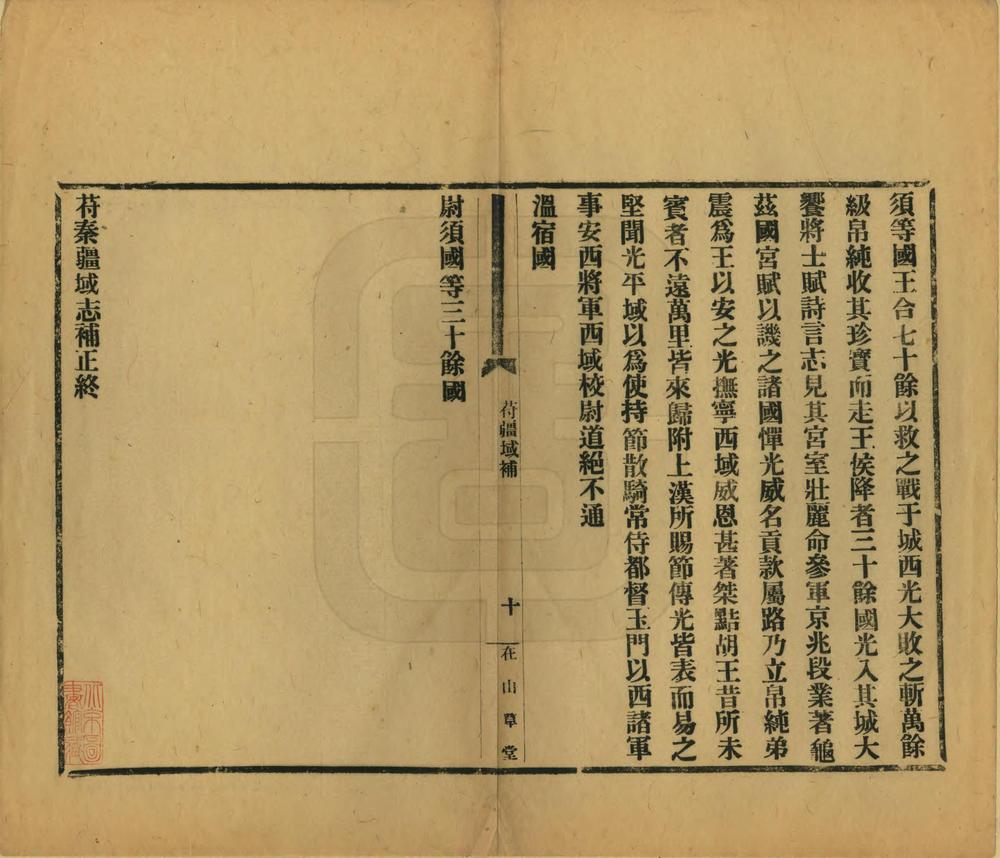 須等國王合七十餘以救之戰于城西光大敗之斬萬餘
級帛純收其珍寶而走王侯降者三十餘國光入其城大
饗將士賦詩言志見其宮室壯麗命參軍京兆段業著龜
茲國宮賦以譏之諸國憚光威名貢款屬路乃立帛純弟
震爲王以安之光撫寧西域威恩甚著桀黠胡王昔所未
賓者不遠萬里皆來歸附上漢所賜節傳光皆表而易之
堅聞光平域以爲使持節散騎常侍都督玉門以西諸軍
事安西將軍西域校尉道絕不通
溫宿國
苻疆域補
十
在山草堂
尉須國等三十餘國
苻秦疆域志補正終